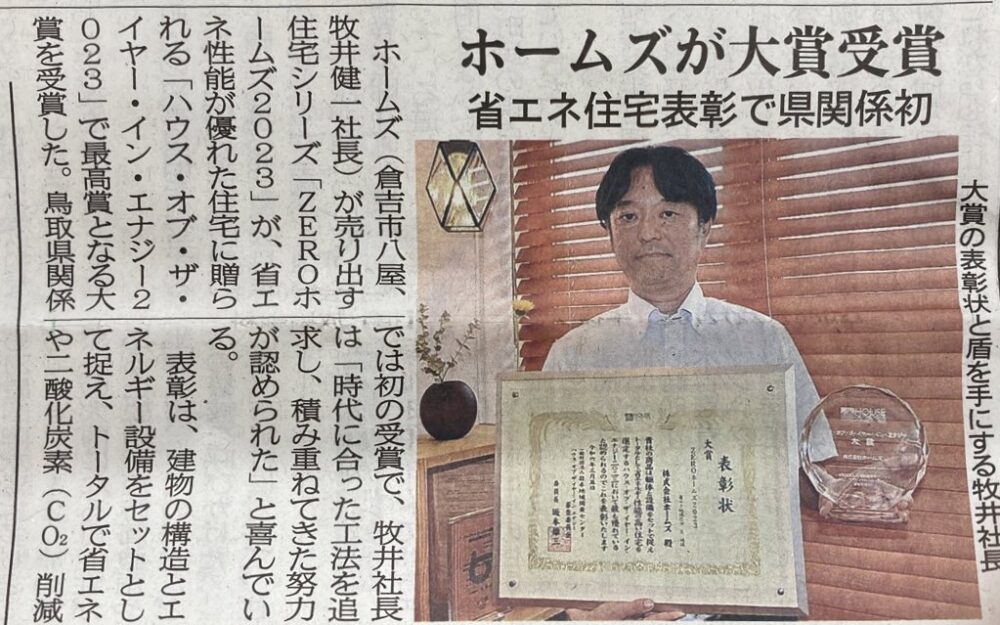 ホームズが大賞受賞
省エネ住宅表彰で県関係初
ホームズ（倉吉市八屋、
牧井健一社長）が売り出す
住宅シリーズ「ＺＥＲＯホ
ームズ２０２３」が、省エ
ネ性能が優れた住宅に贈ら
れる「ハウス・オブ・ザ・
イヤー・イン・エナジー２
０２３」で最高賞となる大
賞を受賞した。鳥取県関係
では初の受賞で、牧井社長
は「時代に合った工法を追
求し、積み重ねてきた努力
が認められた」と喜んでい
る。
表彰は、建物の構造とエ
ネルギー設備をセットとし
て捉え、トータルで省エネ
や二酸化炭素（ＣＯ₂）削減
大賞の表彰状と盾を手にする牧井社長
表彰状
大賞
ＺＥＲＯホームズ２０２３
株式会社ホームズ 殿
貴社の商品は躯体と設備をセットで捉え
HOUSE
大賞
株式会社ホームズ